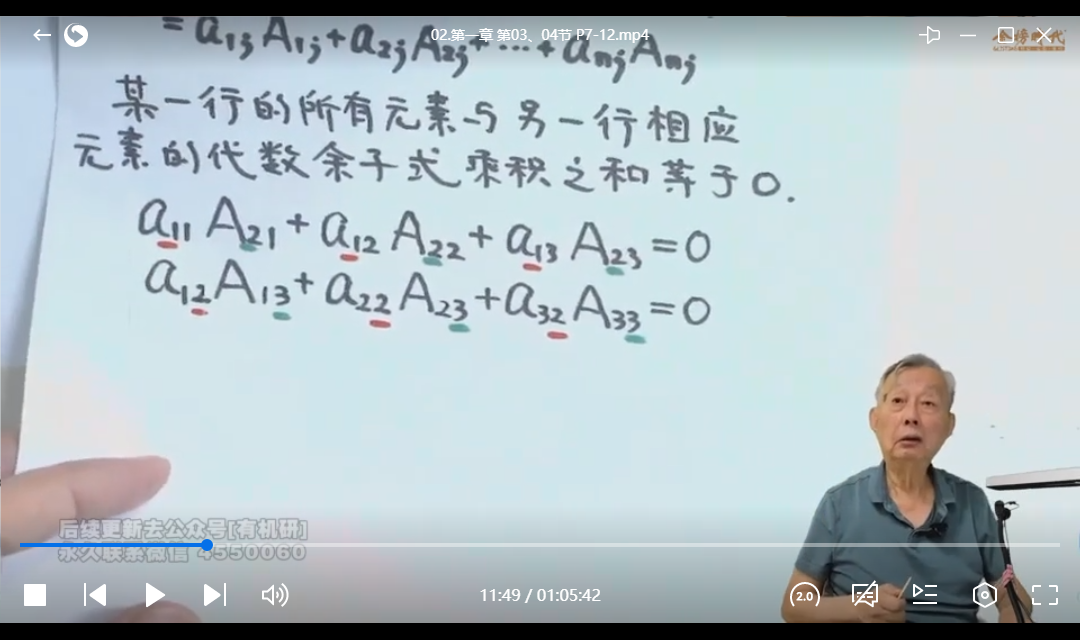 02.第一章 第03、04节 P7-12.mp4
= a₁ⱼA₁ⱼ+a₂ⱼA₂ⱼ+…+aₙⱼAₙⱼ
某一行的所有元素与另一行相应
元素的代数余子式乘积之和等于0.
a₁₁A₂₁+a₁₂A₂₂+a₁₃A₂₃=0
a₁₂A₁₃+a₂₂A₂₃+a₃₂A₃₃=0
后续更新去公众号[有机研]
永久联系微信 4550060
11:49 / 01:05:42
2.0